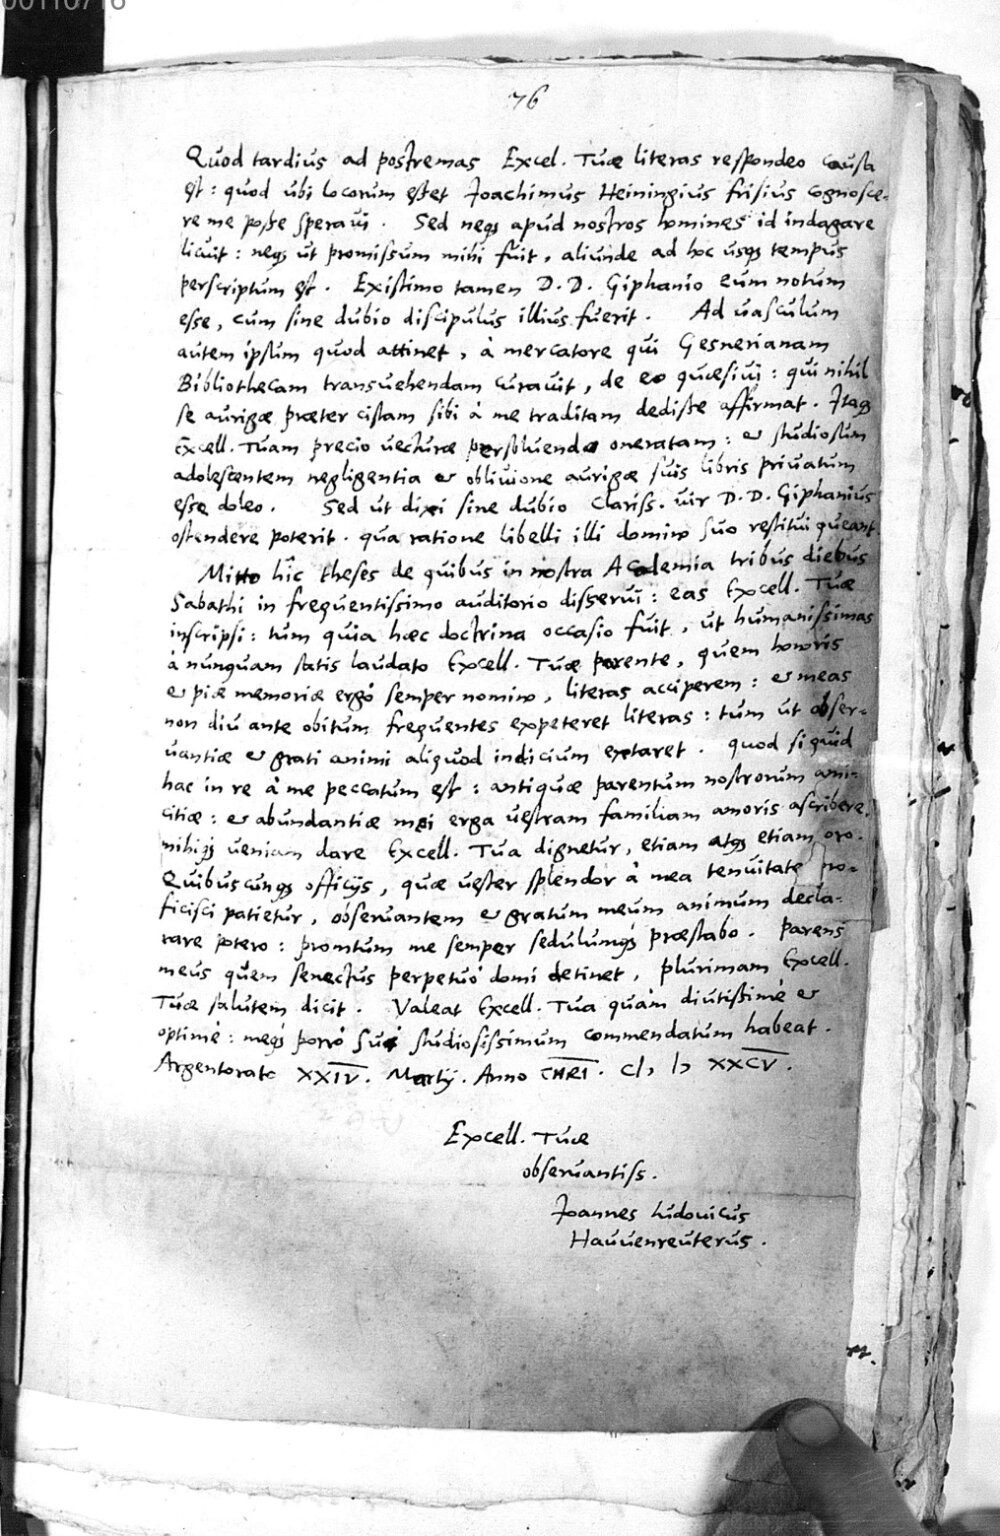 76
Quod tardius ad postremas Excel. Tuæ literas respondeo causa
est: quod ubi locorum esset Joachimus Heiningius frisius cognosce-
re me posse speravi. Sed neqꝫ apud nostros homines id indagare
licuit: neqꝫ ut promissum mihi fuit, aliunde ad hoc usqꝫ tempus
perscriptum est. Existimo tamen D. D. Giphanio eum notum
esse, cum sine dubio discipulus illius fuerit. Ad vasculum
autem ipsum quod attinet, à mercatore qui Gesnerianam
Bibliothecam transuehendam curauit, de eo quæsiui: qui nihil
se aurigæ præter cistam sibi à me traditam dedisse affirmat. Itaqꝫ
Excell. Tuam precio uecturæ persoluendæ oneratam: & studiosum
adolescentem negligentia & obliuione aurigæ suis libris priuatum
esse doleo. Sed ut dixi sine dubio Clariss. uir D. D. Giphanius
ostendere poterit. qua ratione libelli illi domino suo restitui queant
Mitto hîc theses de quibus in nostra Academia tribus diebus
Sabathi in frequentissimo auditorio disserui: eas Excell. Tuæ
inscripsi: tum quia hæc doctrina occasio fuit, ut humanissimas
à nunquam satis laudato Excell. Tuæ parente, quem honoris
& piæ memoriæ ergò semper nomino, literas acciperem: & meas
non diu ante obitum frequentes expeteret literas: tum ut obser-
uantiæ & grati animi aliquod indicium extaret. quod si quid
hac in re à me peccatum est: antiquæ parentum nostrorum ami-
citiæ: & abundantiæ mei erga uestram familiam amoris ascribere,
mihiqꝫ ueniam dare Excell. Tua dignetur, etiam atqꝫ etiam oro.
Quibuscunqꝫ officijs, quæ uester splendor à mea tenuitate pro-
ficisci patietur, obseruantem & gratum meum animum decla-
rare potero: promtum me semper sedulumqꝫ præstabo. Parens
meus quem senectus perpetuò domi detinet, plurimam Excell.
Tuæ salutem dicit. Valeat Excell. Tua quàm diutissimè &
optimè: meqꝫ porrò sui studiosissimum commendatum habeat.
Argentorato XXIV. Martij. Anno CHRI. CIↃ IↃ XXCV.
Excell. Tuæ
obseruantiss.
Joannes Ludouicus
Hauuenreuterus.